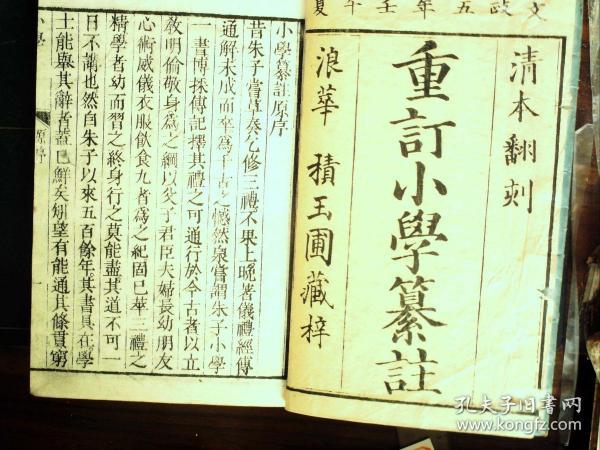 文政五年壬午夏
清本翻刻
重訂小學纂註
浪華 積玉圃藏梓
小學纂註原序
昔朱子嘗草奏乞修三禮不果上晚著儀禮經傳
通解未成而卒為千古之憾然泉嘗謂朱子小學
一書博採傳記擇其禮之可通行於今古者以立
教明倫敬身為之綱以父子君臣夫婦長幼朋友
心術威儀衣服飲食九者為之紀固已萃三禮之
精學者幼而習之終身行之莫能盡其道不可一
日不講也然自朱子以來五百餘年其書具在學
士能舉其辭者蓋已鮮矣矧望有能通其條貫窮
小學 原序 一
孔夫子旧书网
www.kongfz.com